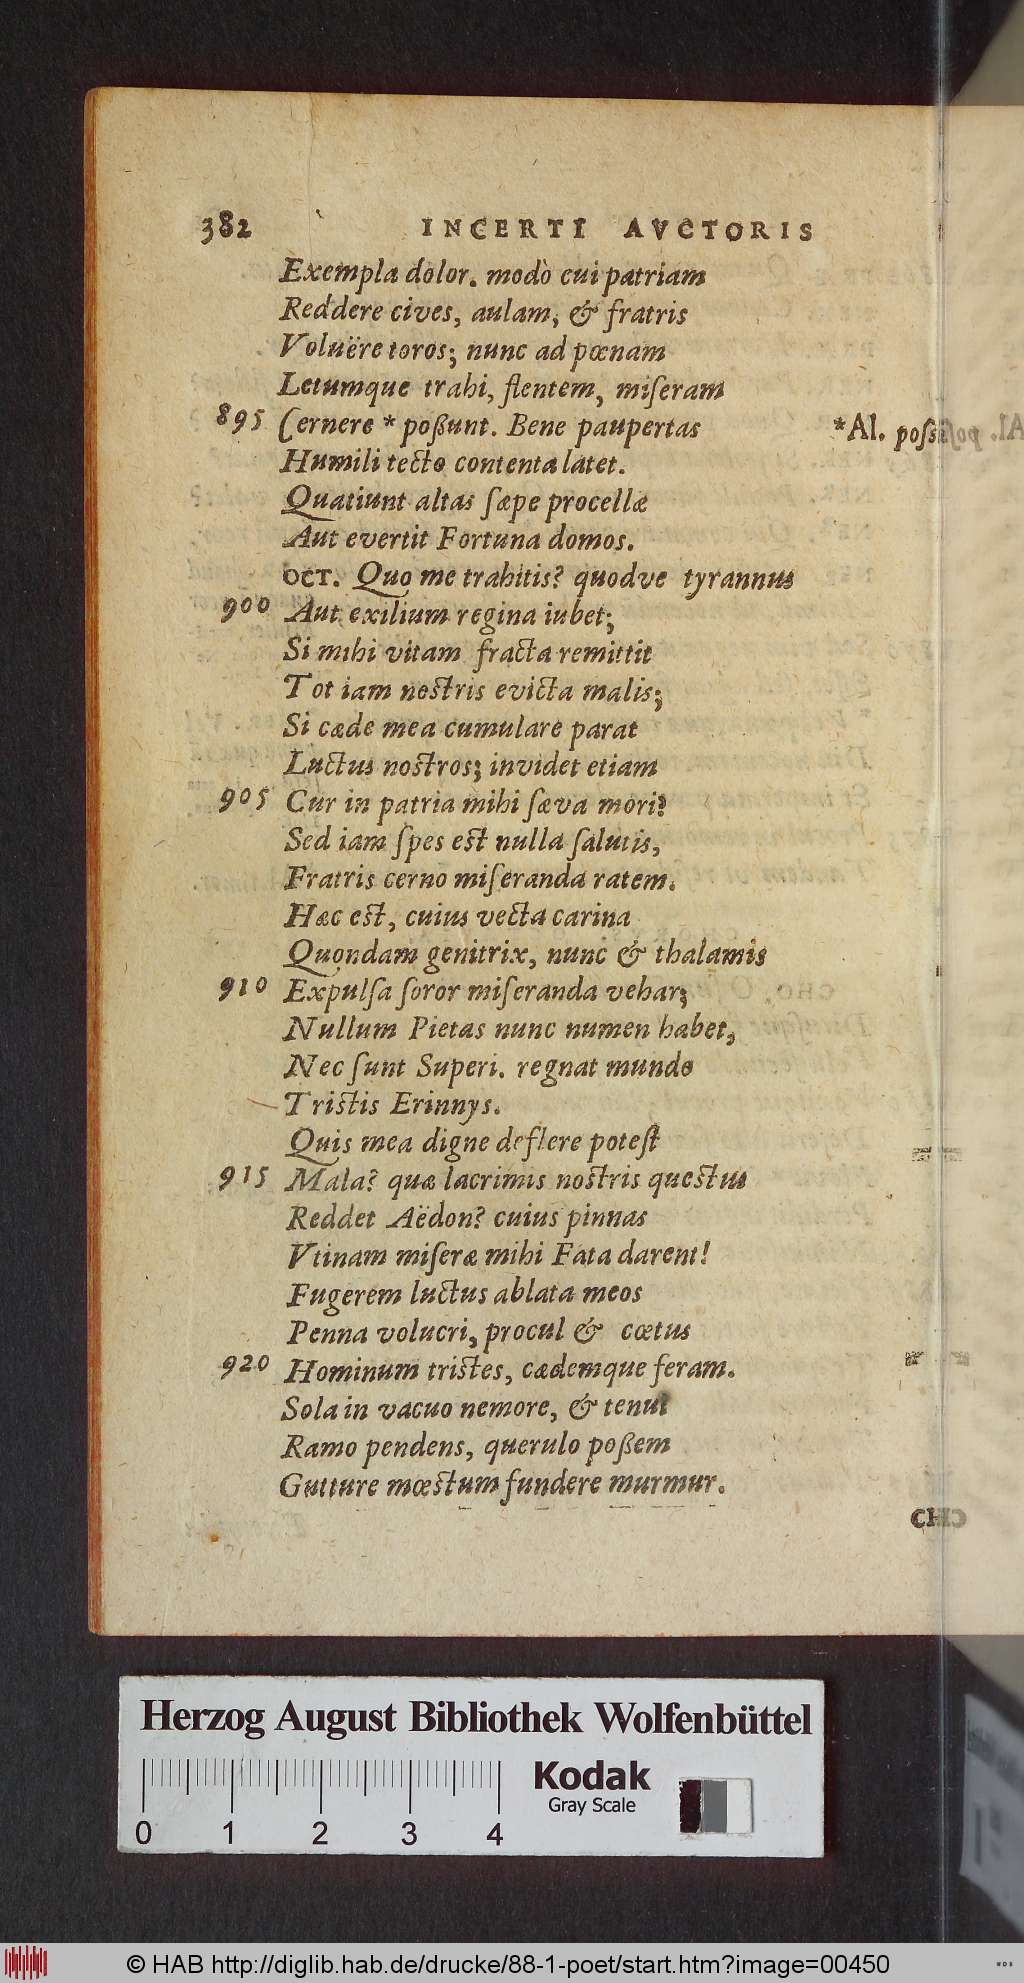 382 INCERTI AVCTORIS
Exempla dolor. modò cui patriam
Reddere cives, aulam, & fratris
Voluëre toros; nunc ad pœnam
Letumque trahi, flentem, miſeram
895 Cernere * poßunt. Bene paupertas *Al. poſsis
Humili tecto contenta latet.
Quatiunt altas ſæpe procellæ
Aut evertit Fortuna domos.
OCT. Quo me trahitis? quodve tyrannus
900 Aut exilium regina iubet;
Si mihi vitam fracta remittit
Tot iam nostris evicta malis;
Si cæde mea cumulare parat
Luctus nostros; invidet etiam
905 Cur in patria mihi ſæva mori?
Sed iam ſpes est nulla ſalutis,
Fratris cerno miſeranda ratem.
Hæc est, cuius vecta carina
Quondam genitrix, nunc & thalamis
910 Expulſa ſoror miſeranda vehar;
Nullum Pietas nunc numen habet,
Nec ſunt Superi. regnat mundo
Tristis Erinnys.
Quis mea digne deflere poteſt
915 Mala? quæ lacrimis nostris questus
Reddet Aëdon? cuius pinnas
Vtinam miſeræ mihi Fata darent!
Fugerem luctus ablata meos
Penna volucri, procul & cœtus
920 Hominum tristes, cædemque feram.
Sola in vacuo nemore, & tenui
Ramo pendens, querulo poßem
Gutture mœstum fundere murmur.
Herzog August Bibliothek Wolfenbüttel
Kodak
Gray Scale
0 1 2 3 4
© HAB http://diglib.hab.de/drucke/88-1-poet/start.htm?image=00450